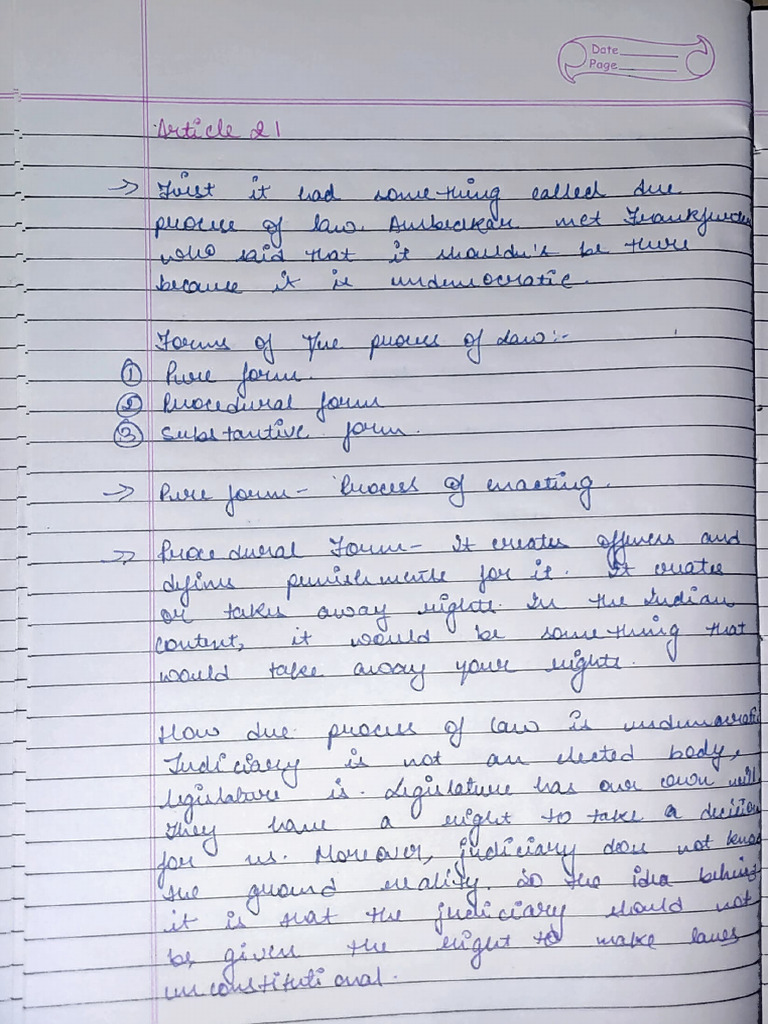 Date
Page
Article 21
→ First it had something called due
process of law. Ambedkar met Frankfurter
who said that it shouldn't be there
because it is undemocratic.
Forms of Due process of Law:-
① Pure form.
② Procedural form
③ Substantive form.
→ Pure form - Process of enacting.
→ Procedural Form - It creates offences and
defines punishments for it. It creates
or takes away rights. In the Indian
context, it would be something that
would take away your rights.
How due process of law is undemocratic
Judiciary is not an elected body,
legislature is. Legislature has our own will
They have a right to take a decision
for us. Moreover, judiciary does not know
the ground reality. So the idea behind
it is that the judiciary should not
be given the right to make laws
unconstitutional.